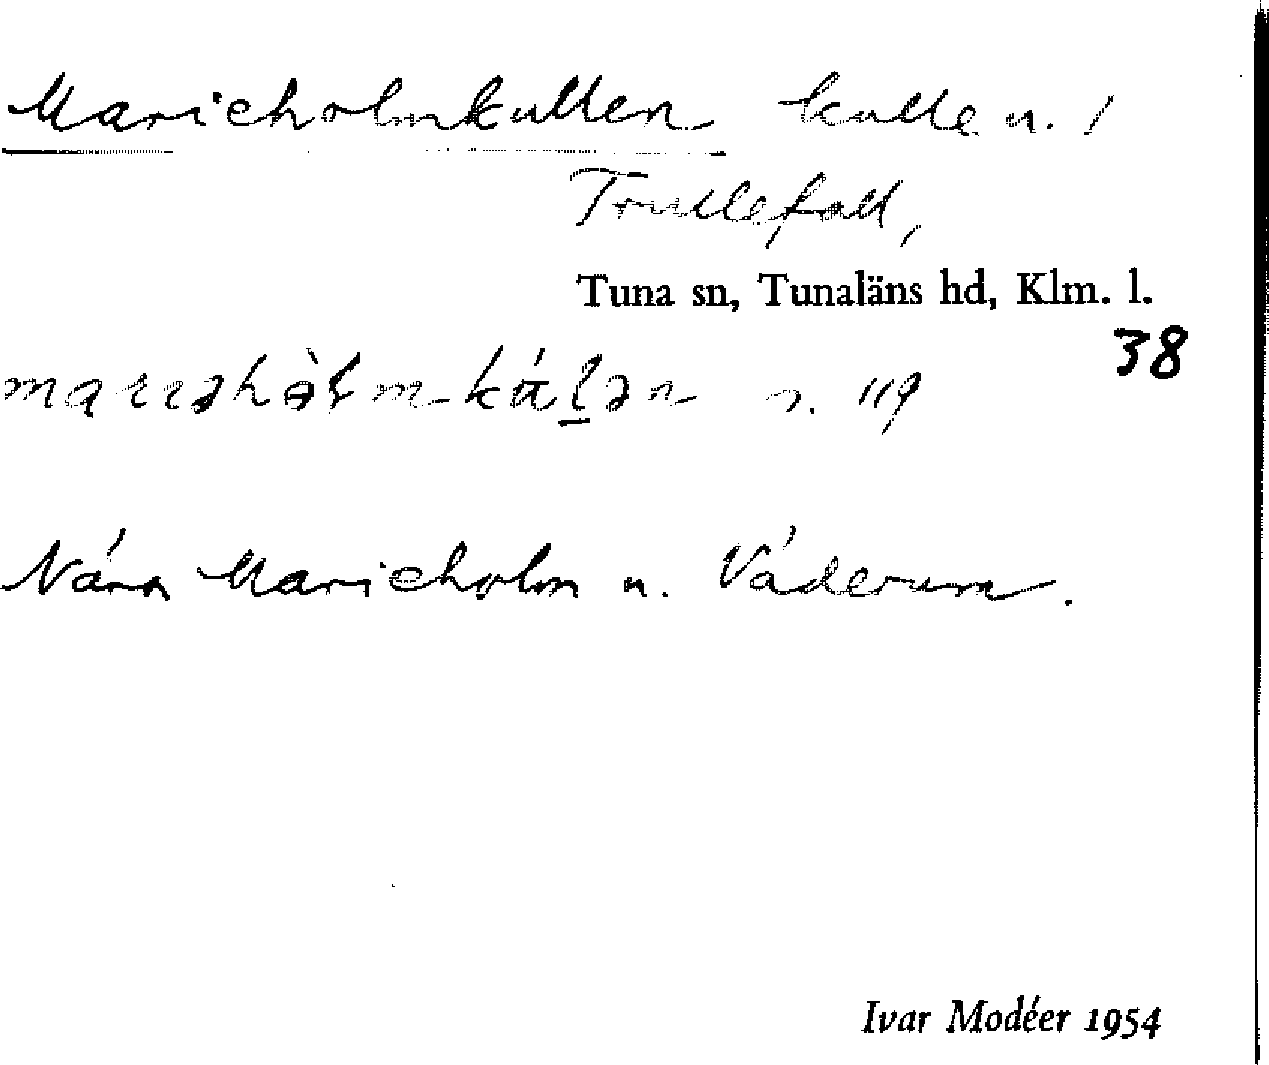 Marieholmkullen kulle u. /
Trullefall,
Tuna sn, Tunaläns hd, Klm. l.
38
Nära Marieholm u. Väderum.
Ivar Modéer 1954